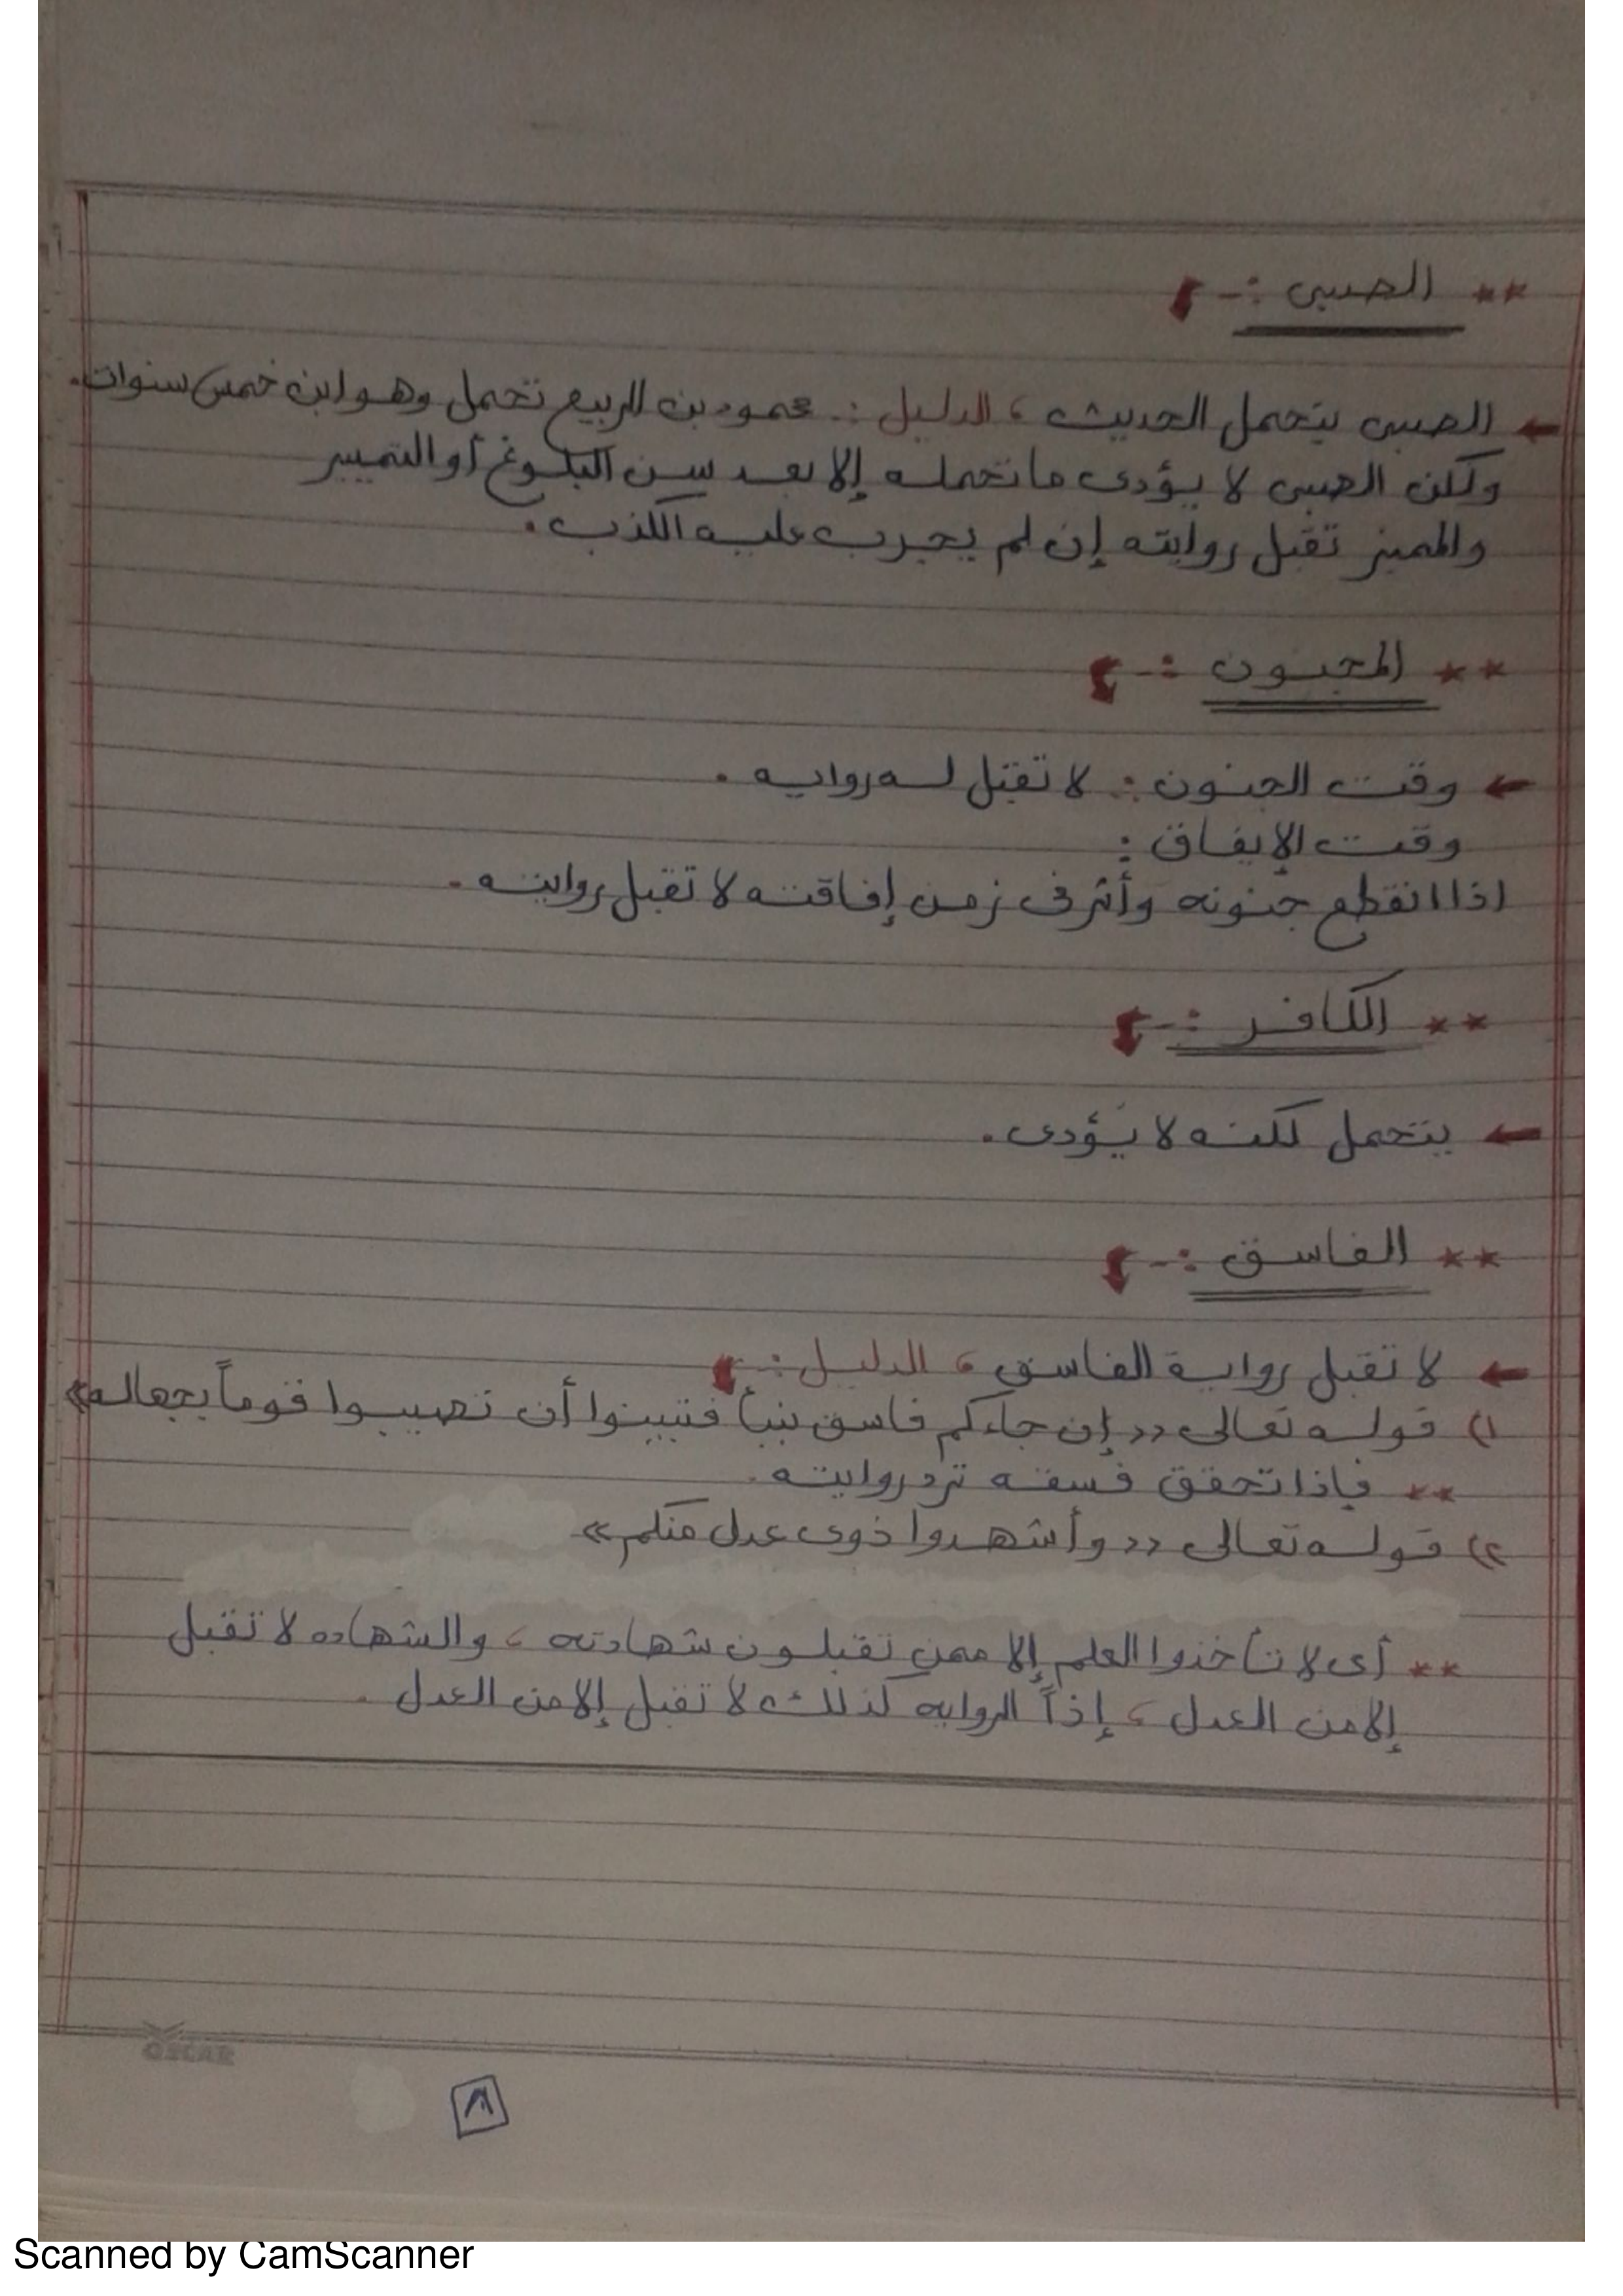 ** الصبى :-
← الصبى يتحمل الحديث ، الدليل :. محمود بن الربيع تحمل وهو ابن خمس سنوات.
ولكن الصبى لا يؤدى ما تحمله إلا بعد سن البلوغ أو التمييز
والمميز تقبل روايته إن لم يجرب عليه الكذب.
** المجنون :-
← وقت الجنون :. لا تقبل له روايه .
وقت الإيفاق :
اذا انقطع جنونه وأثر فى زمن إفاقته لا تقبل روايته .
** الكافر :-
← يتحمل لكنه لا يؤدى .
** الفاسق :-
← لا تقبل رواية الفاسق ، الدليل :-
١) قوله تعالى «إن جاءكم فاسق بنبأ فتبينوا أن تصيبوا قوماً بجهاله»
** فإذا تحقق فسقه ترد روايته .
٢) قوله تعالى «وأشهدوا ذوى عدل منكم»
** أى لا تأخذوا العلم إلا ممن تقبلون شهادته ، والشهاده لا تقبل
إلا من العدل ، إذاً الروايه كذلك لا تقبل إلا من العدل .
OSCAR
٨
Scanned by CamScanner